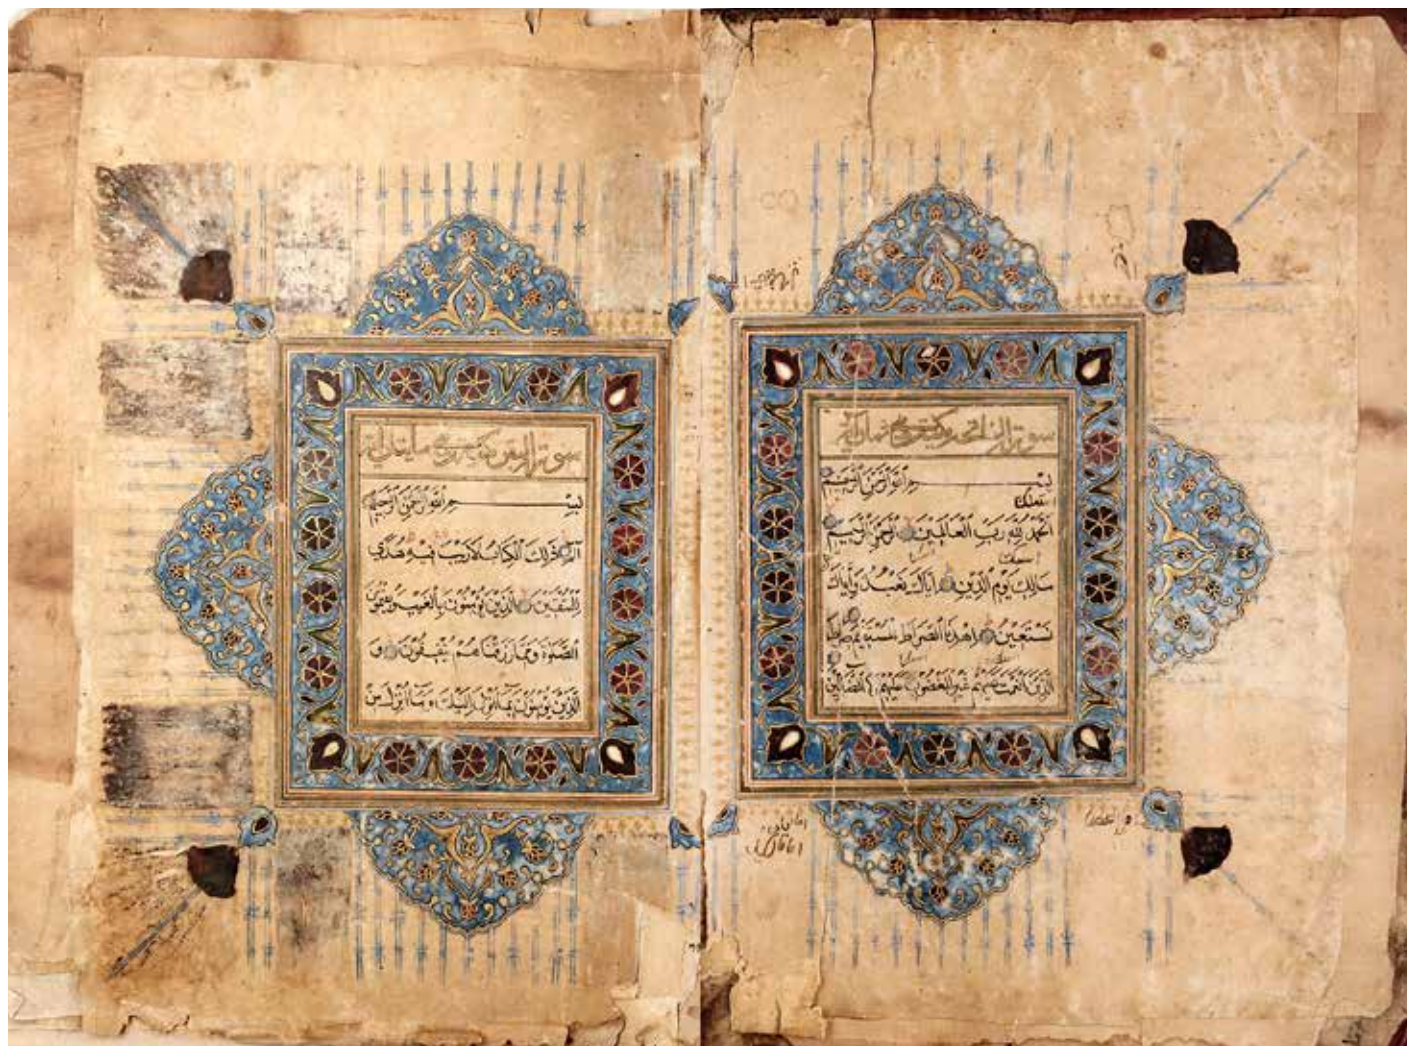 سورة الفاتحة
بسم الله الرحمن الرحيم
الحمد لله رب العالمين الرحمن الرحيم
مالك يوم الدين اياك نعبد واياك
نستعين اهدنا الصراط المستقيم صراط
الذين انعمت عليهم غير المغضوب عليهم ولا الضالين
سورة البقرة
بِسْمِ اللهِ الرَّحْمٰنِ الرَّحِيمِ
الم ذلك الكتاب لا ريب فيه هدى
للمتقين الذين يؤمنون بالغيب ويقيمون
الصلوة ومما رزقناهم ينفقون و
الذين يؤمنون بما انزل اليك وما انزل من